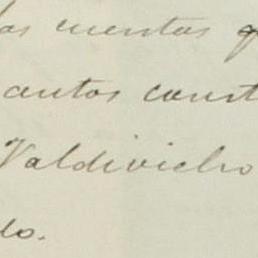 las cuentas q
cuantos const
Valdivielso
do.